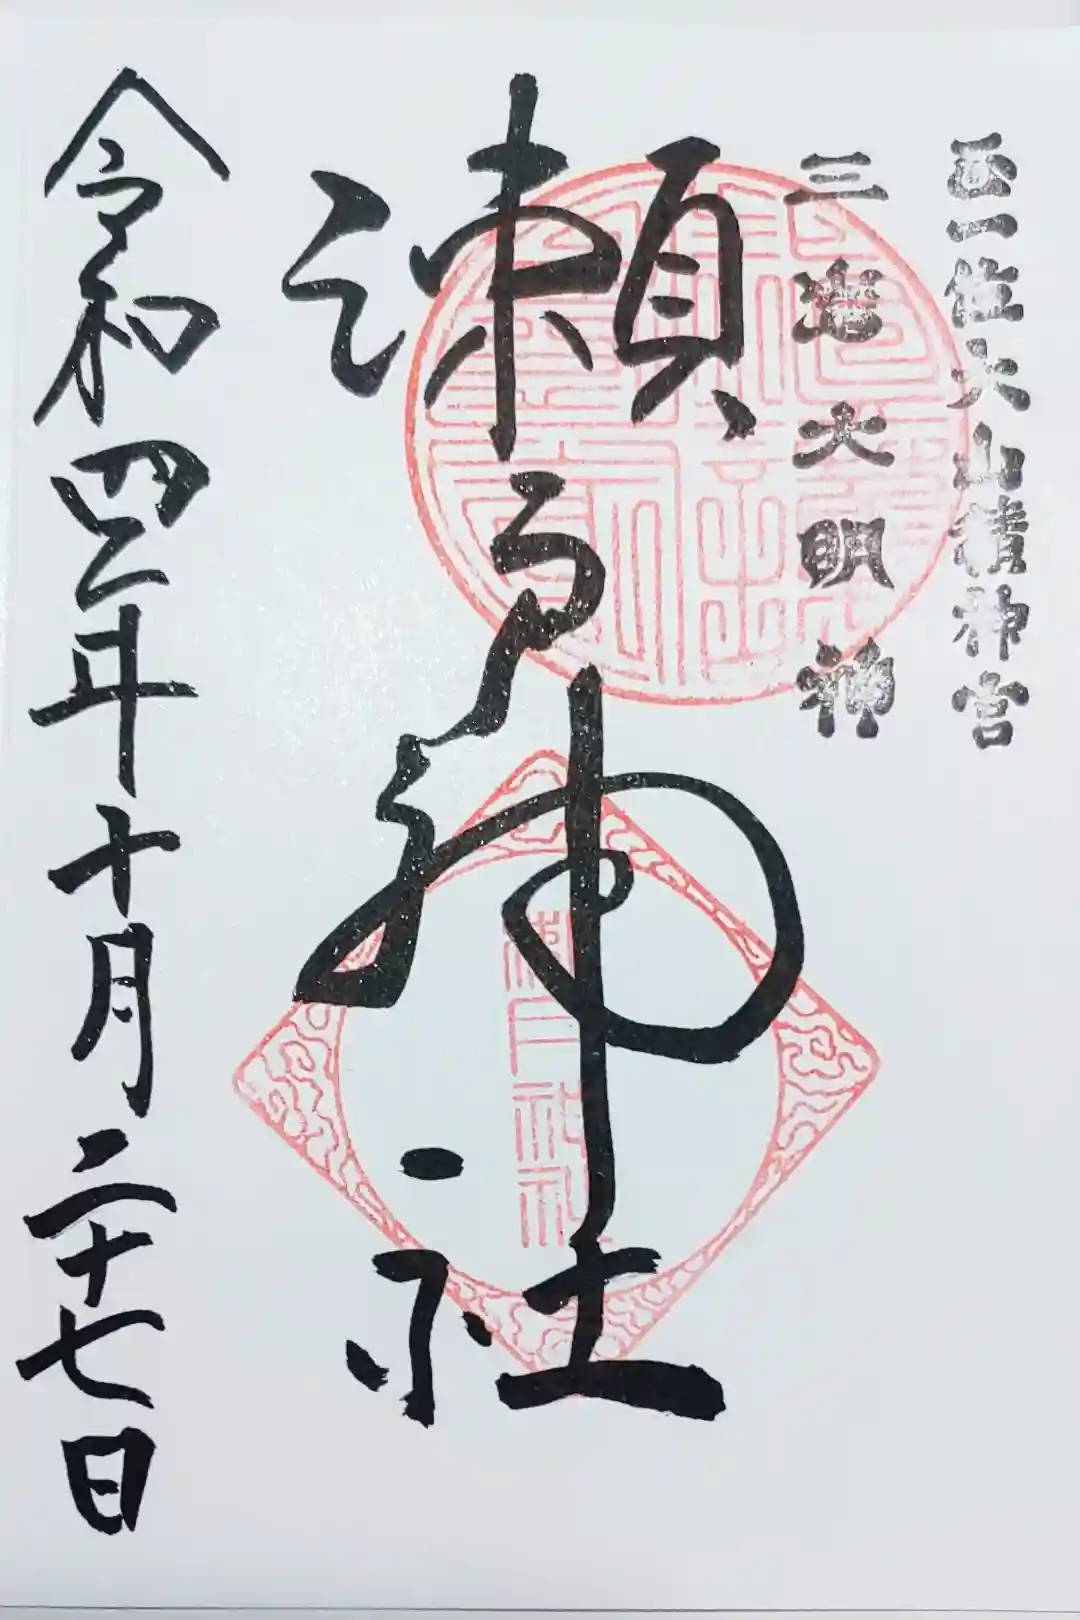 正一位大山積神宮
三嶋大明神
瀬戸神社
瀬戸神社
令和四年十月二十七日